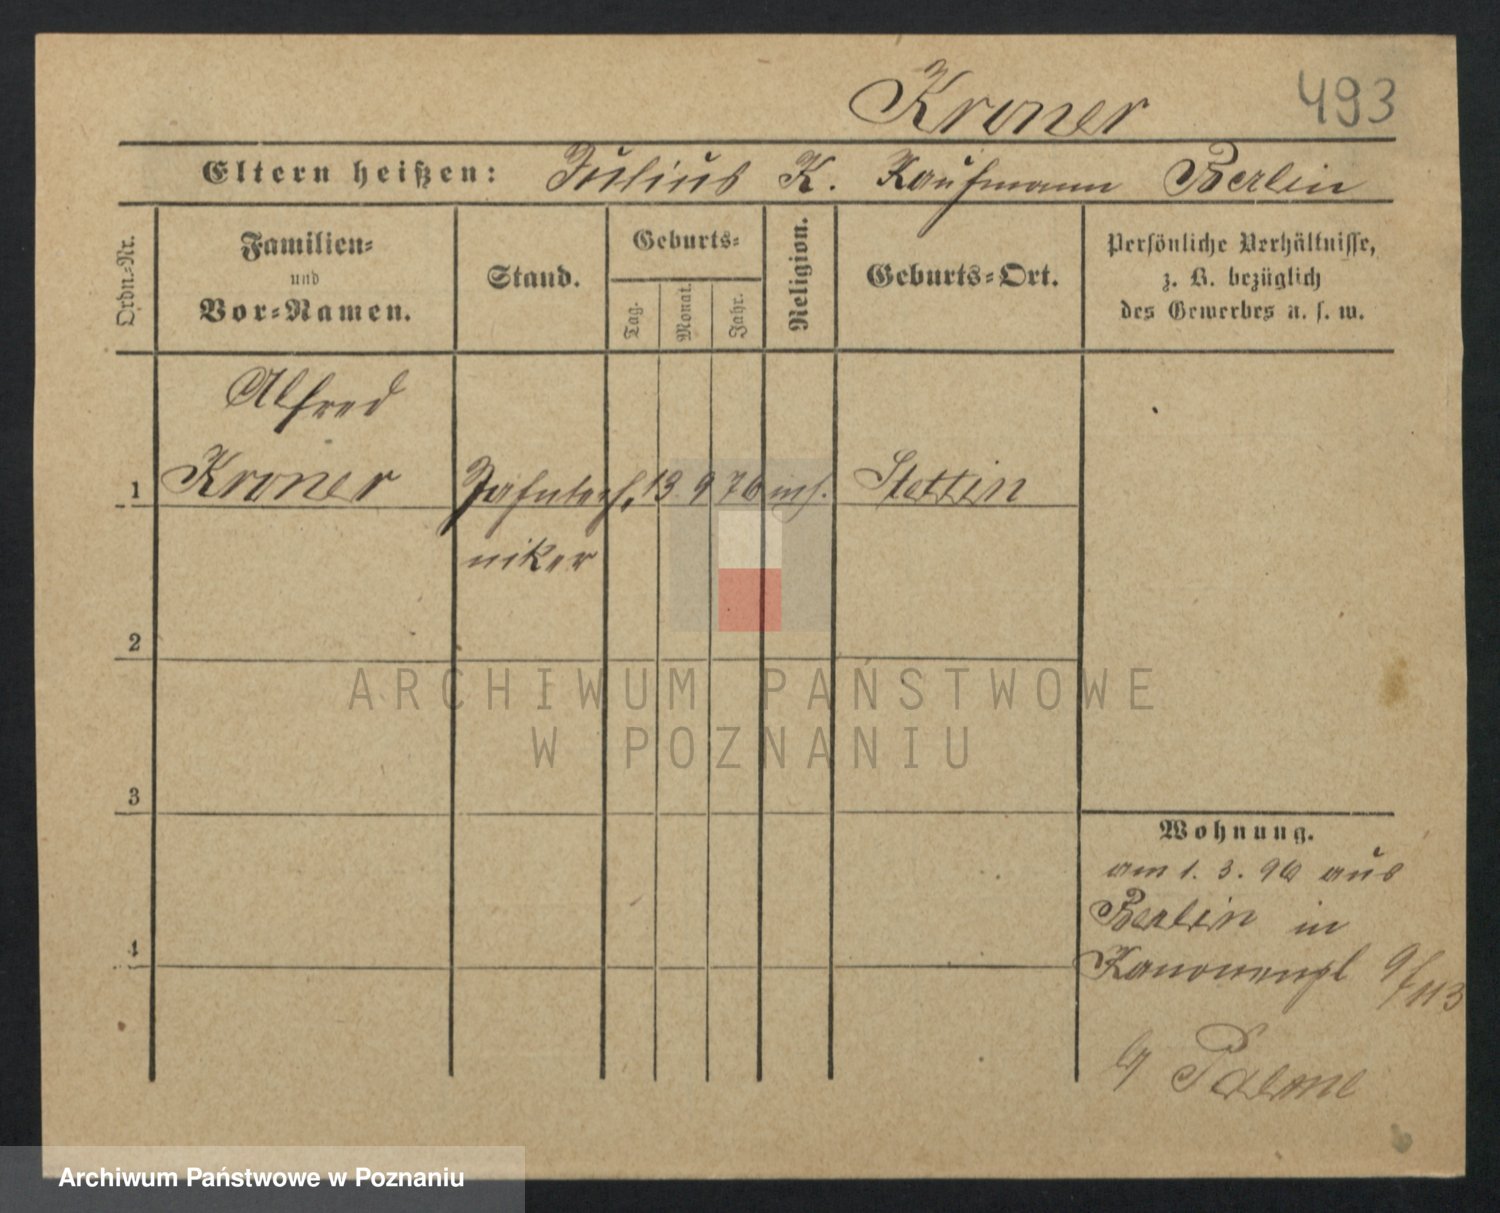 Kroner 493
Eltern heißen: Julius K. Kaufmann Berlin
Ordn.-Nr.
Familien-
und
Vor-Namen.
Stand.
Geburts-
Tag.
Monat.
Jahr.
Religion.
Geburts-Ort.
Persönliche Verhältnisse,
z. B. bezüglich
des Gewerbes u. s. w.
Alfred
1 Kroner Zahntech- 13 9 76 Stettin
niker
2
3
4
Wohnung.
am 1. 3. 96 aus
Berlin in
Kanonenpl 9/113
ARCHIWUM PAŃSTWOWE
W POZNANIU
Archiwum Państwowe w Poznaniu